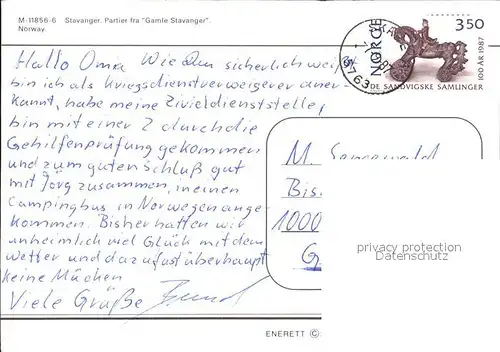 M-11856-6 Stavanger. Partier fra "Gamle Stavanger".
Norway.
Hallo Oma Wie Du sicherlich weißt
bin ich als Kriegsdienstverweigerer aner-
kannt, habe meine Zivildienststelle,
bin mit einer 2 durch die
Gehilfenprüfung gekommen
und zum guten Schluß gut
mit Jörg zusammen, in einen
Campingbus in Norwegen ange-
kommen. Bisher hatten wir
unheimlich viel Glück mit dem
Wetter und dazu fast überhaupt
keine Mücken
Viele Grüße
NORGE
350
100 ÅR 1987
DE SANDVIGSKE SAMLINGER
M.
Bis
1000
privacy protection
Datenschutz
ENERETT ©